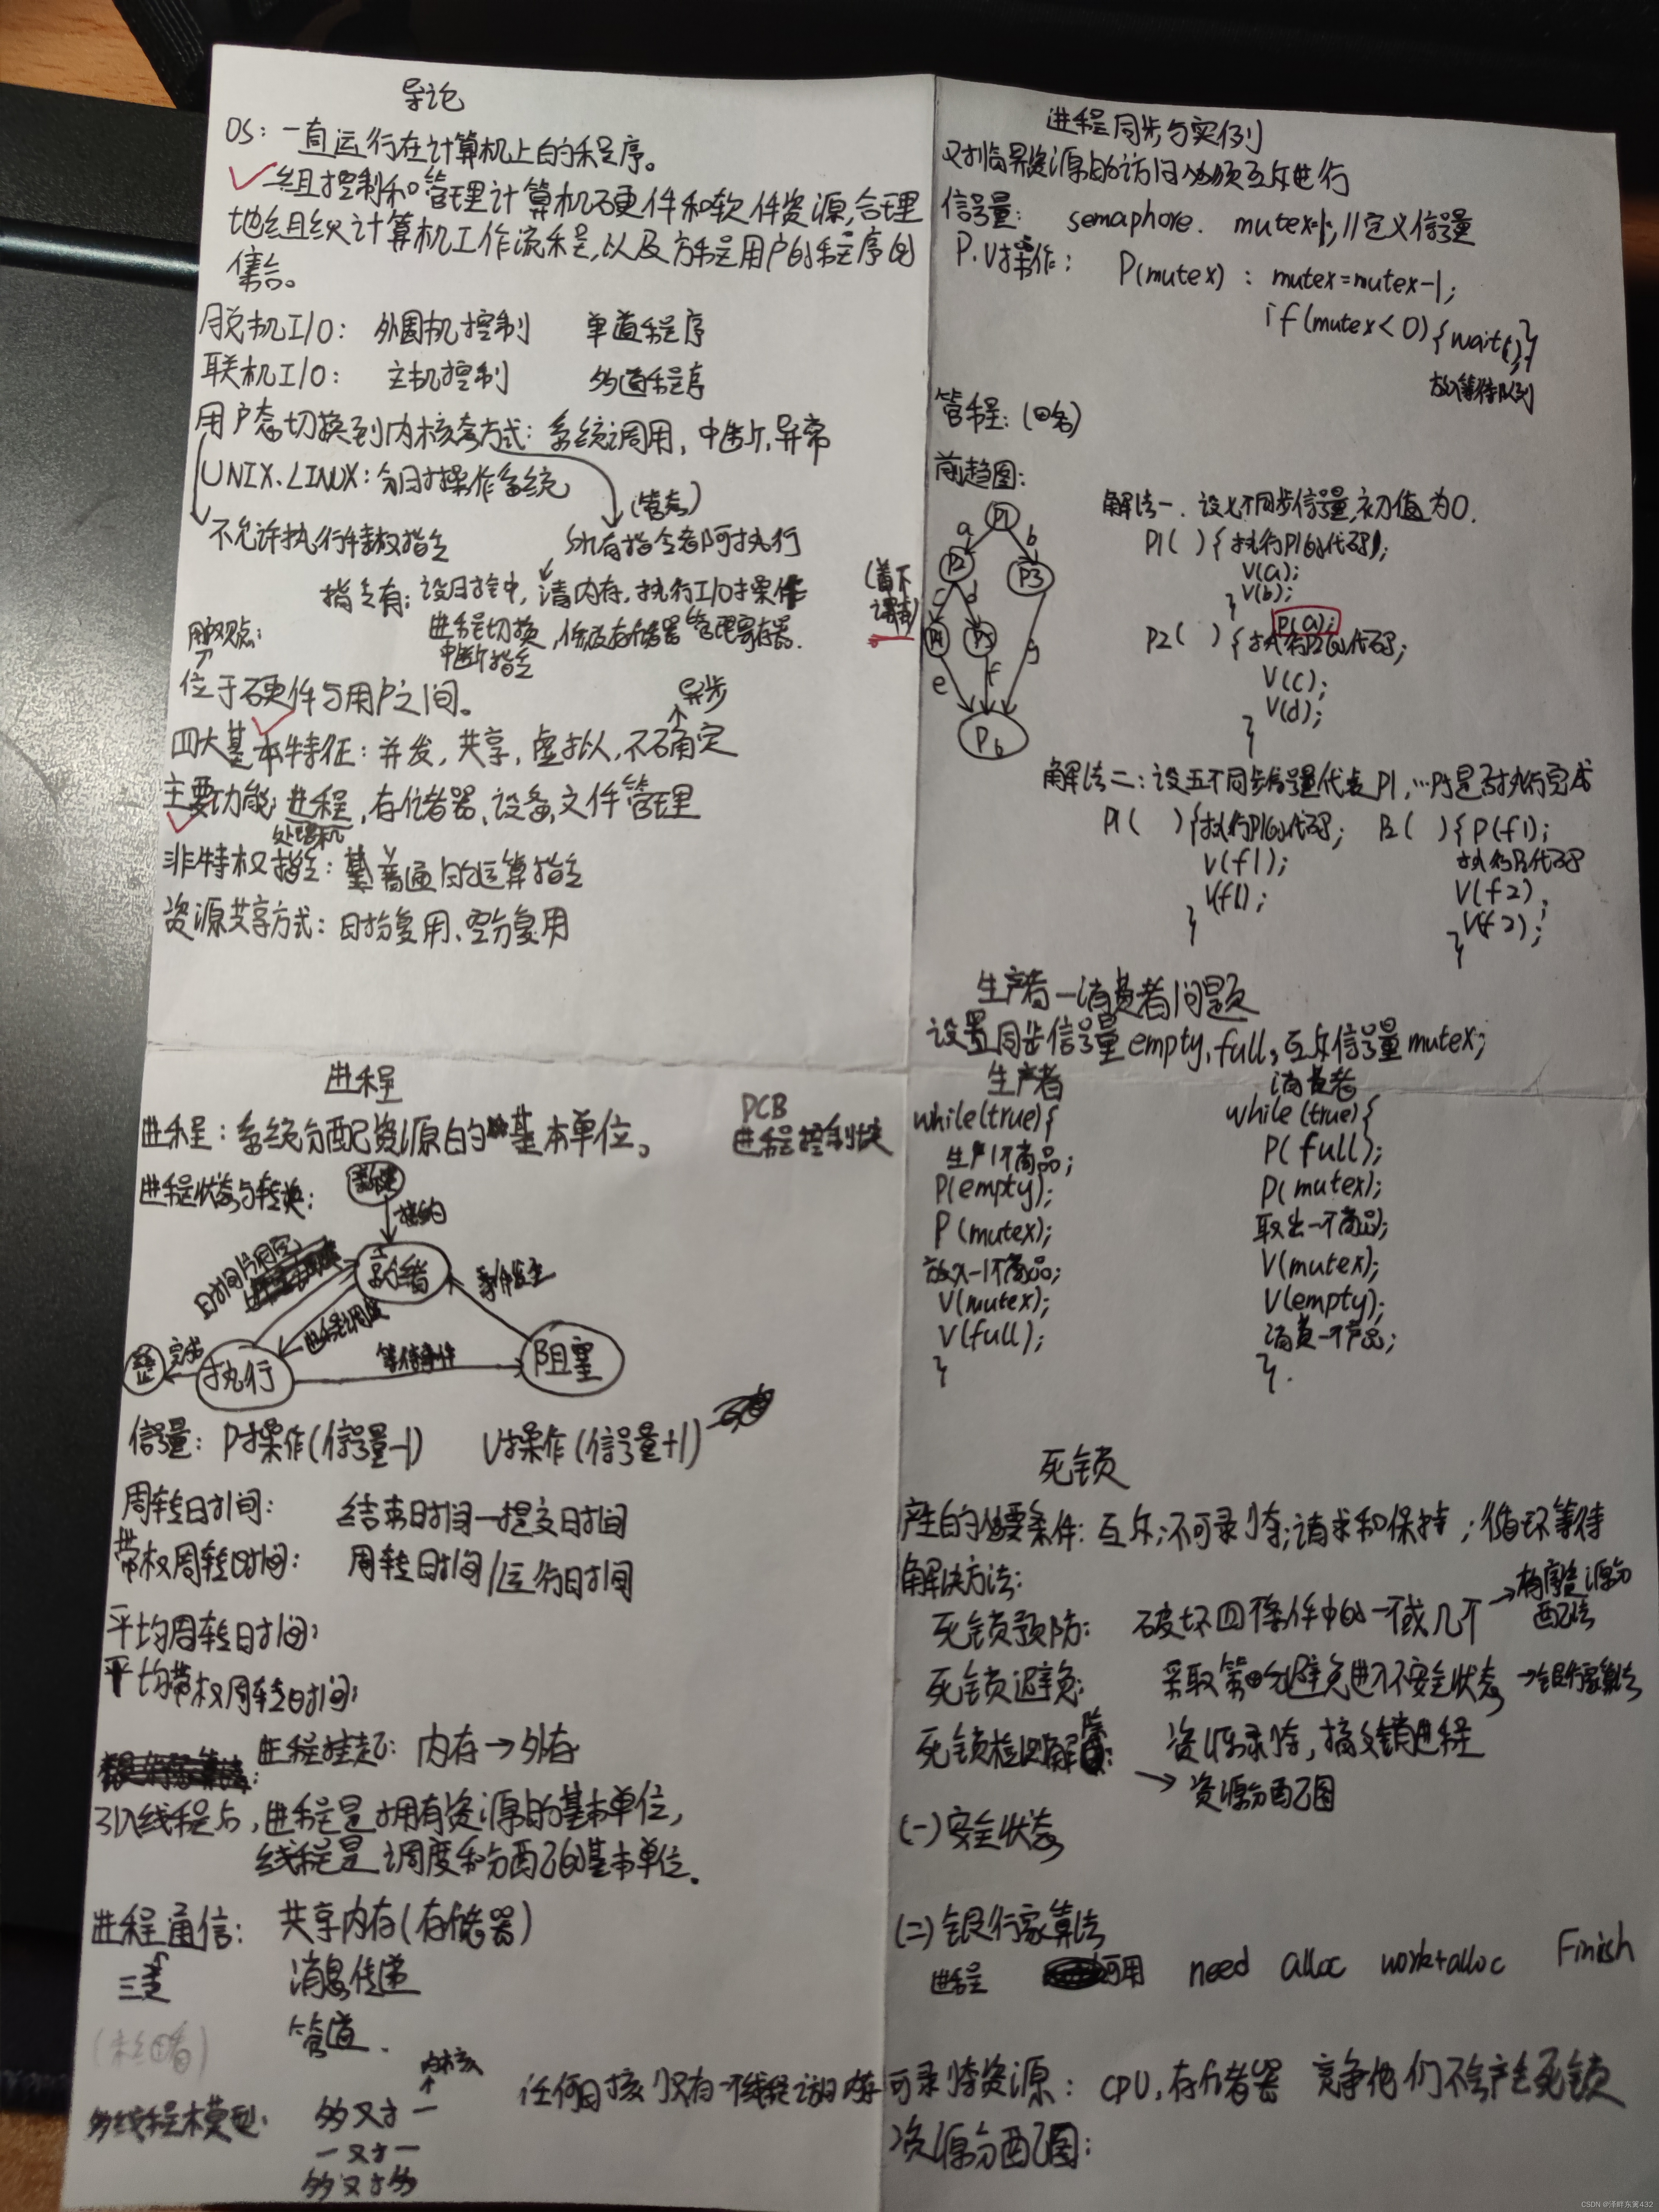 导论
OS：一直运行在计算机上的程序。
一组控制和管理计算机硬件和软件资源,合理
地组织计算机工作流程,以及方便用户的程序的
集合。
脱机I/O： 外围机控制 单道程序
联机I/O： 主机控制 多道程序
用户态切换到内核态方式：系统调用，中断，异常
UNIX、LINUX：分时操作系统
(管态)
不允许执行特权指令 所有指令都可执行
指令有：设时钟，清内存，执行I/O操作
进程切换，修改存储器管理寄存器.
中断指令
(看下课本)
用户观点：
位于硬件与用户之间。
异步
四大基本特征：并发，共享，虚拟，不确定
主要功能：进程，存储器、设备、文件管理
处理机
非特权指令：普通的运算指令
资源共享方式：时分复用、空分复用
进程同步与实例
对临界资源的访问必须互斥进行
信号量： semaphore. mutex=1; //定义信号量
P.V操作： P(mutex)：mutex=mutex-1;
if(mutex<0){wait();}
放入等待队列
管程：
前趋图：
P1
a b
P2 P3
c d
P4 P5 g
e f
P6
解法一．设七个同步信号量,初值为0.
P1( ){执行P1的代码;
V(a);
V(b);
}
P(a);
P2( ){执行P2的代码;
V(c);
V(d);
}
解法二：设五个同步信号量代表P1,…P5是否执行完成
P1( ){执行P1的代码; P2( ){P(f1);
V(f1); 执行P2代码
V(f1); V(f2);
} V(f2);
}
生产者—消费者问题
设置同步信号量empty,full,互斥信号量mutex;
生产者 消费者
while(true){ while(true){
生产1个商品; P(full);
P(empty); P(mutex);
P(mutex); 取出一个商品;
放入一个商品; V(mutex);
V(mutex); V(empty);
V(full); 消费一个产品;
} }.
进程
进程：系统分配资源的基本单位。
PCB
进程控制块
进程状态与转换：
新建
接纳
就绪
时间片用完
进程调度
事件发生
完成
执行
等待事件
阻塞
信号量：P操作(信号量-1) V操作(信号量+1)
周转时间： 结束时间—提交时间
带权周转时间： 周转时间/运行时间
平均周转时间：
平均带权周转时间：
进程挂起：内存→外存
引入线程后,进程是拥有资源的基本单位,
线程是调度和分配的基本单位.
进程通信： 共享内存(存储器)
三类 消息传递
管道.
内核
多线程模型： 多对一
一对一
多对多
任何时刻只有一个线程访问内核
死锁
产生的必要条件：互斥;不可剥夺;请求和保持;循环等待
解决方法：
死锁预防： 破坏四个条件中的一个或几个
→有序资源分配法
死锁避免： 采取策略避免进入不安全状态 →银行家算法
死锁检测解除： 资源剥夺，撤销进程
→资源分配图
(一)安全状态
(二)银行家算法
进程 可用 need alloc work+alloc Finish
可剥夺资源：CPU,存储器 竞争他们不会产生死锁
资源分配图：
CSDN @泽畔东篱432